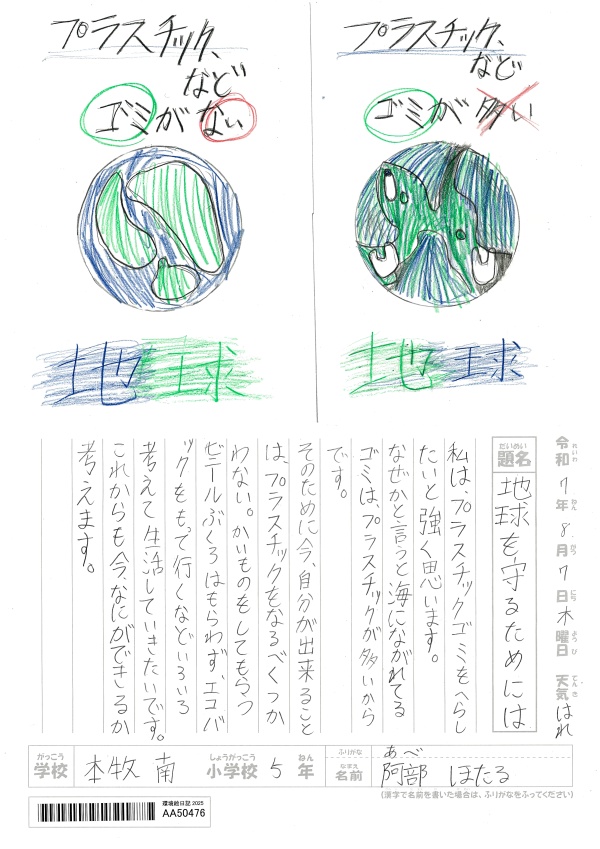 プラスチック、
など
ゴミがない
地球
プラスチック、
など
ゴミが多い
地球
令和7年8月7日木曜日 天気はれ
れいわ ねん がつ にち ようび てんき
だいめい
題名 地球を守るためには
私は、プラスチックゴミをへらし
たいと強く思います。
なぜかと言うと海にながれてる
ゴミは、プラスチックが多いから
です。
そのために今、自分が出来ること
は、プラスチックをなるべくつか
わない。かいものをしてもらう
ビニールぶくろはもらわず、エコバ
ックをもって行くなどいろいろ
考えて生活していきたいです。
これからも今、なにができるか
考えます。
がっこう しょうがっこう ねん
学校 本牧南 小学校 5年
ふりがな あべ
なまえ
名前 阿部 ほたる
(漢字で名前を書いた場合は、ふりがなをふってください)
環境絵日記 2025
AA50476